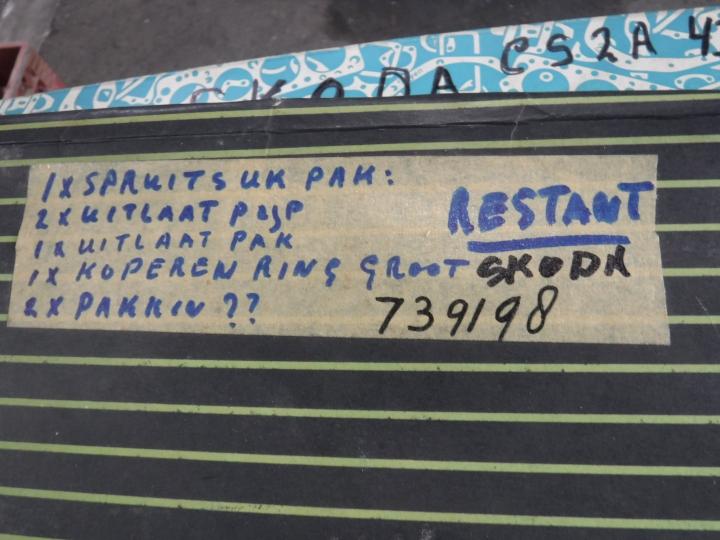 SKODA CS2A 4
1 X SPRUITSUK PAK:
2 X UITLAAT PijP
1 X UITLAAT PAK
1 X KOPEREN RING GROOT
2 X PAKKIN ??
RESTANT
SKODA
739198